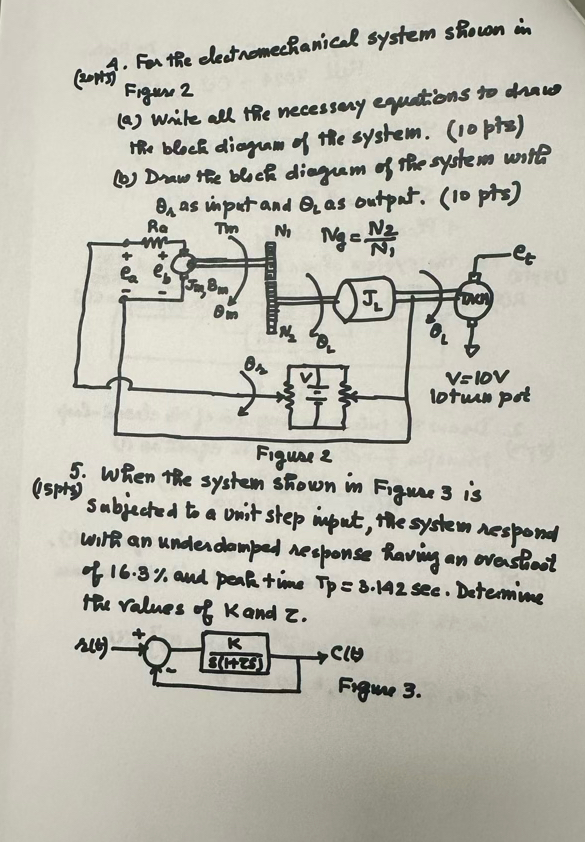 4. For the electromechanical system shown in
(20pts) Figure 2
(a) Write all the necessary equations to draw
the block diagram of the system. (10 pts)
(b) Draw the block diagram of the system with
θr as input and θL as output. (10 pts)
Ra Tm N1 Ng = N2/N1 et
+ + ea eb - - Jm, Bm θm JL TACH
N2 θL θL
θr V V=10V
10 turn pot
Figure 2
5. When the system shown in Figure 3 is
(15pts) subjected to a unit step input, the system respond
with an underdamped response having an overshoot
of 16.3% and peak time Tp = 3.142 sec. Determine
the values of K and τ.
r(t) + - K/s(1+τs) C(t)
Figure 3.